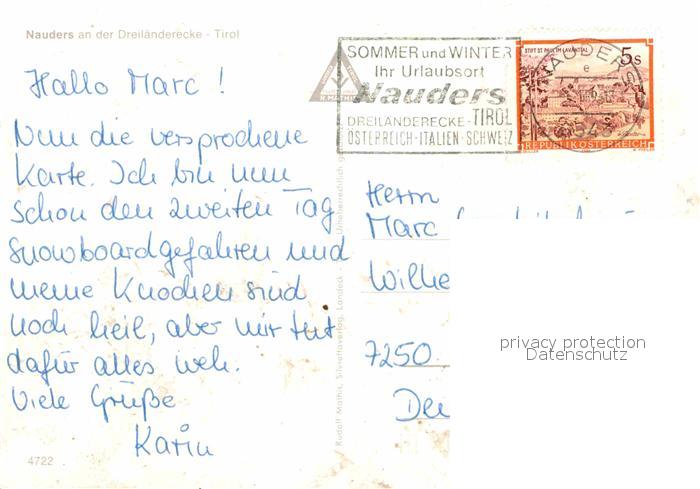 Nauders an der Dreiländerecke - Tirol
Hallo Marc!
Nun die versprochene
Karte. Ich bin nun
schon den zweiten Tag
snowboardgefahren und
meine Knochen sind
noch heil, aber mir tut
dafür alles weh.
Viele Grüße
Karin
4722
SOMMER und WINTER
Ihr Urlaubsort
Nauders
TIROL
DREILÄNDERECKE-
ÖSTERREICH-ITALIEN-SCHWEIZ
STIFT ST. PAUL IM LAVANTTAL
5s
NAUDERS
REPUBLIK ÖSTERREICH
Herrn
Marc
Wilhe
7250
privacy protection
Datenschutz